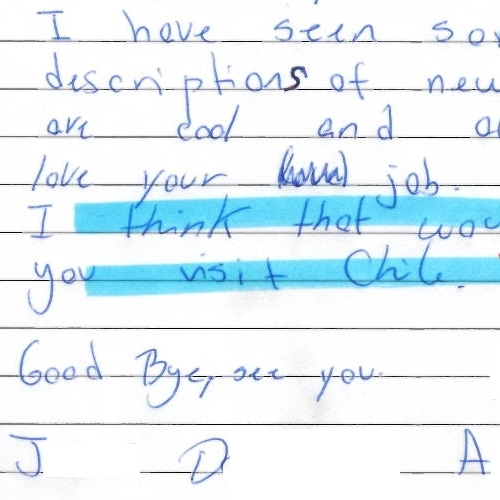 I have seen so
descriptions of new
are cool and a
love your job.
I think that wou
you visit Chile.
Good Bye, see you.
J D A